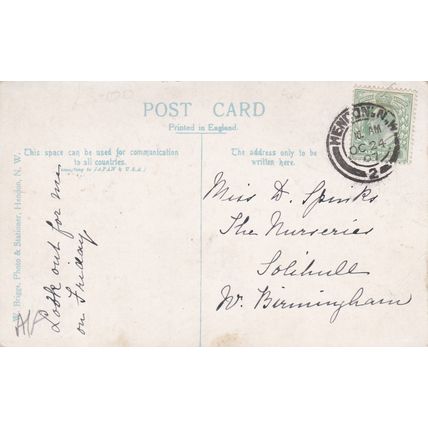 POST CARD
Printed in England.
This space can be used for communication
to all countries.
(excepting to JAPAN & U.S.A.)
The address only to be
written here.
HENDON. N.W.
AM
OC 24
07
2
W. Briggs, Photo & Stationer, Hendon, N. W.
Look out for me
on Friday
Miss D. Spinks
The Nurseries
Solihull
Nr. Birmingham